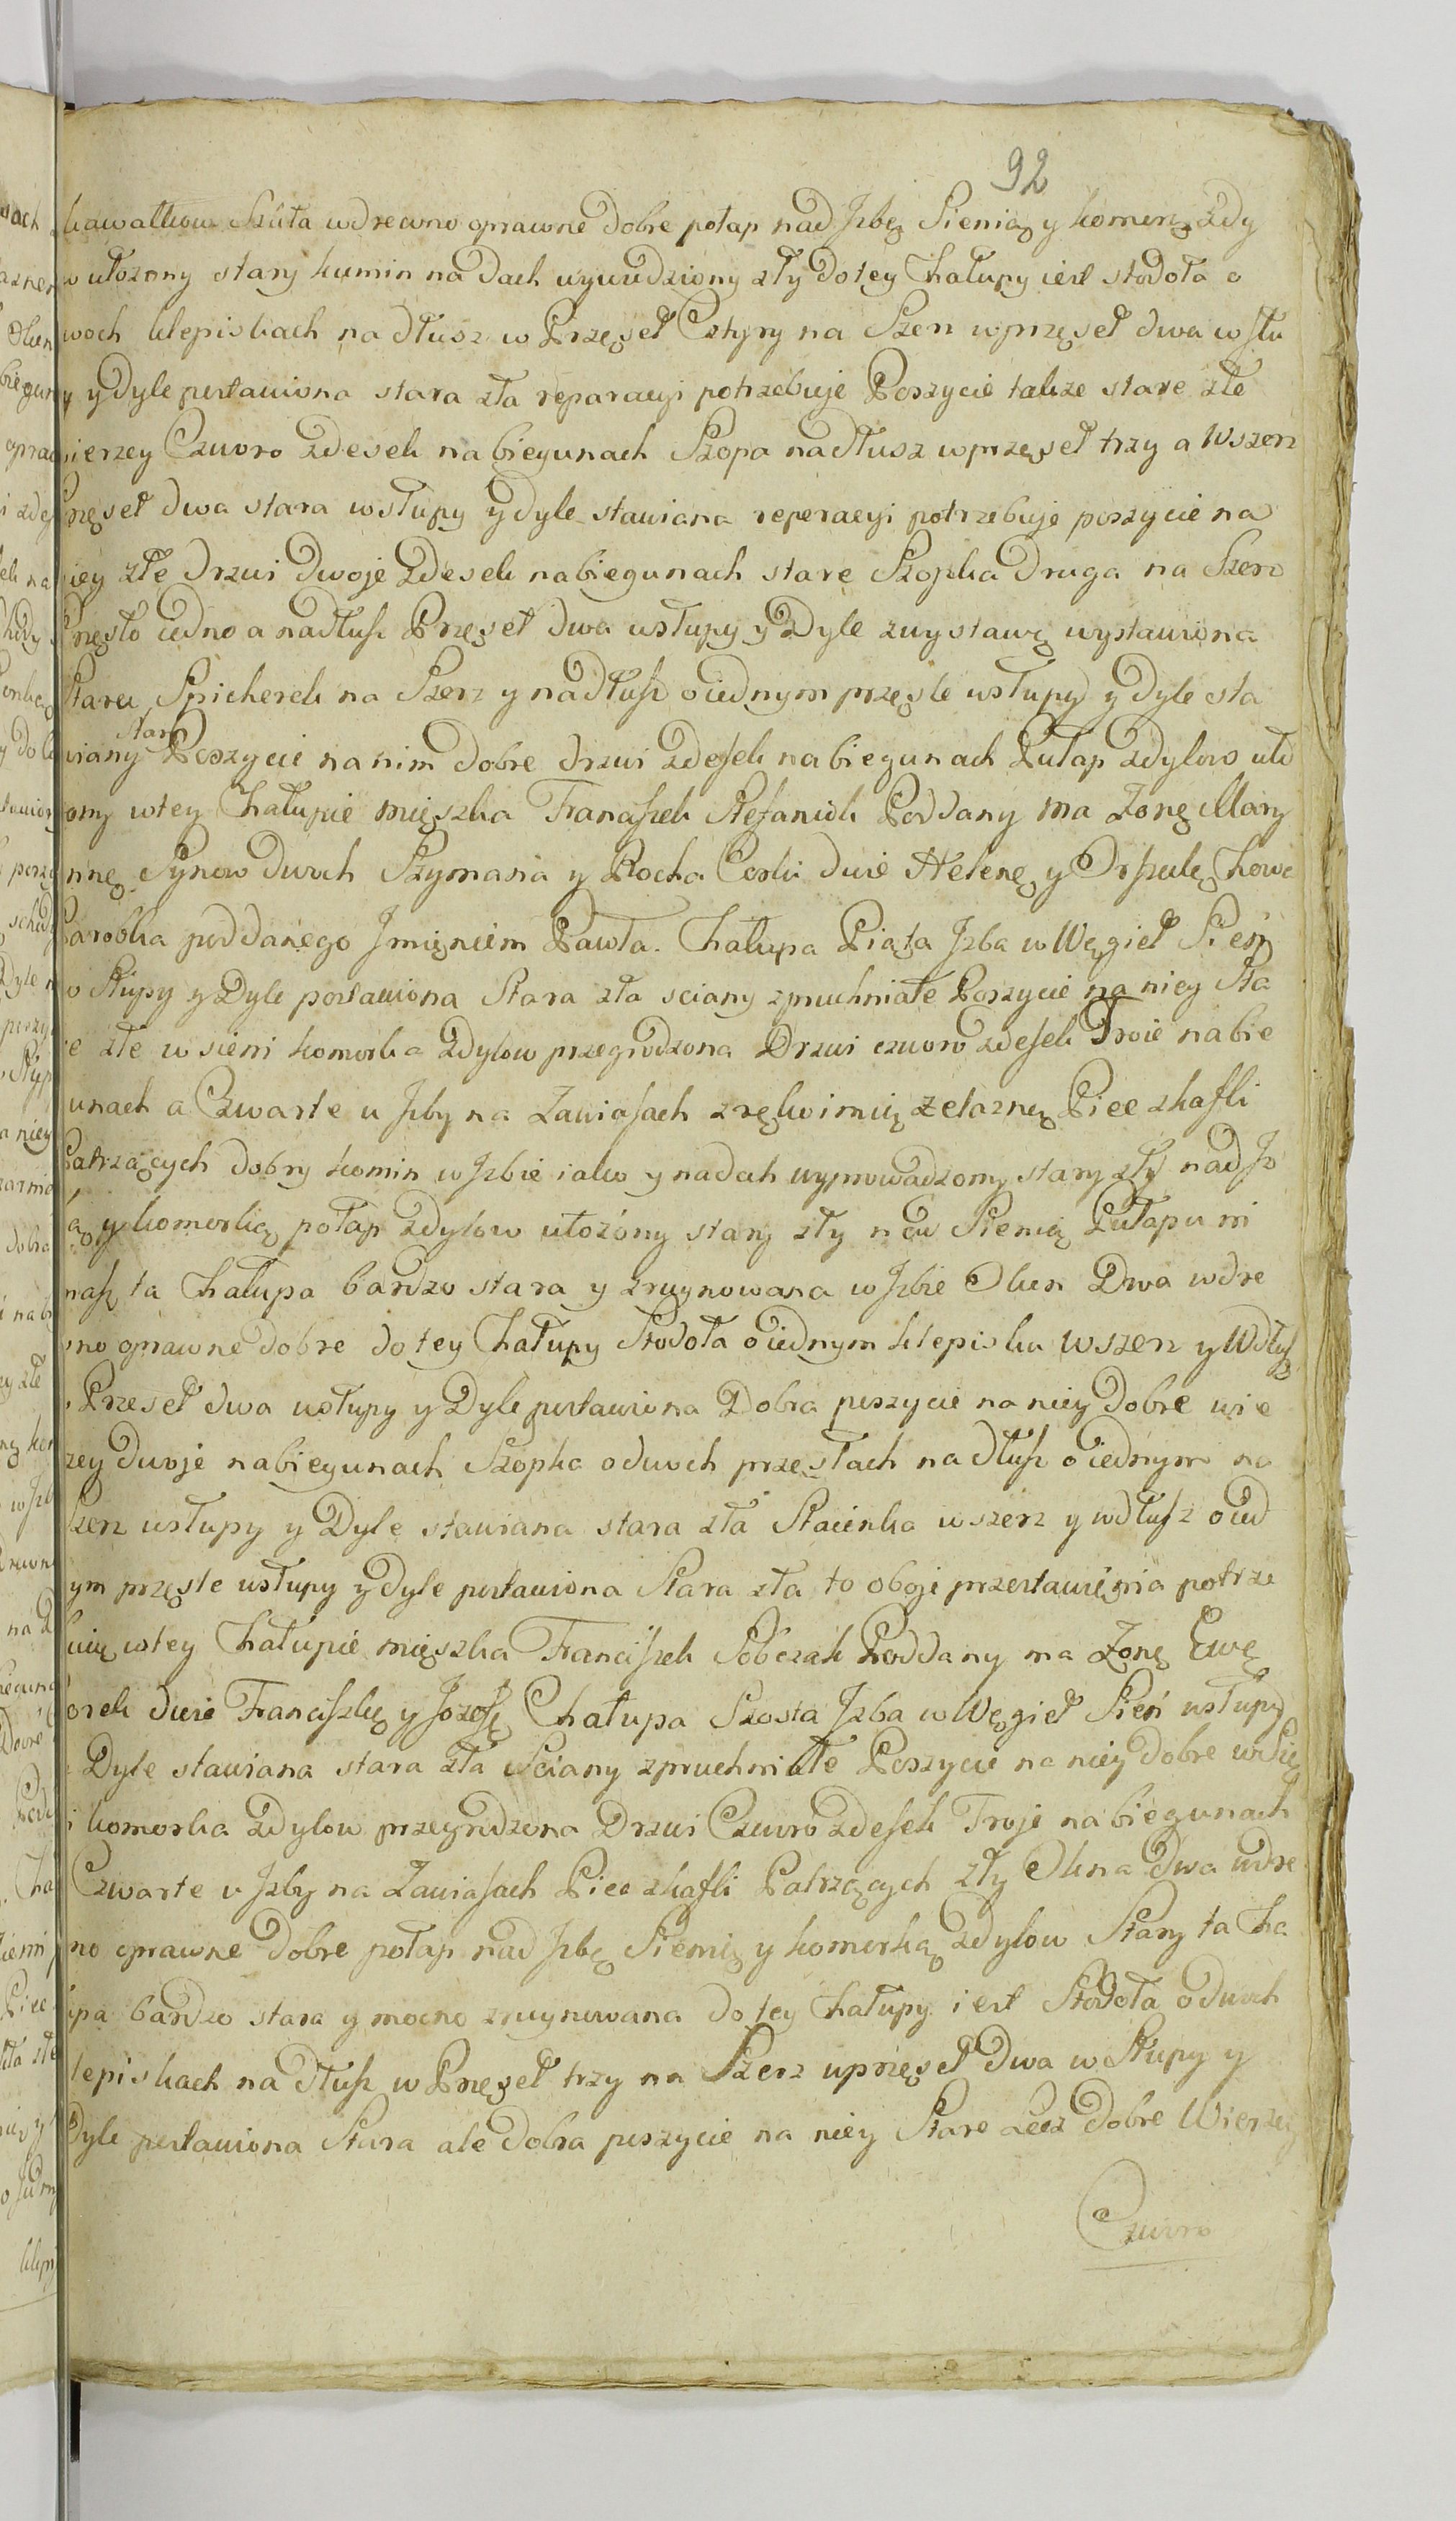 92
kawałkow Szkła wdrewno oprawne dobre połap nad Jzbę Sienią y komorą zdy
w ułożony stary kumin na Dach wywiedziony zły do tey Chałupy iest stodoła o
woch klepiskach na dłusz w Przęseł Cztyry na Szerz w przęseł dwa w słu
y y dyle postawiona stara zła reparacyi potrzebuje Poszycie także stare złe
ierzey Czworo zdesek na biegunach Szopa na dłusz w przęseł trzy a Wszerz
Przęseł dwa stara w słupy y dyle stawiana reperacyi potrzebuje poszycie na
iey złe drzwi Dwoje zdesek na biegunach stare Szopka druga na Szerz
Przęsło iedno a na dłusz Przęseł dwa w słupy y Dyle zwystawą wystawiona
Stara Spicherek na Szerz y na dłusz o iednym przęsle w słupy y dyle sta
wiany stary Poszycie na nim dobre drzwi zdesek na biegunach Pułap zdylow uło
ony w tey Chałupie mięszka Franciszek Stefaniak Poddany ma Żonę Mary
nnę Synow dwuch Szymana y Rocha Corki dwie Helenę y Orszulę Chowa
Parobka poddanego Jmięniem Pawła. Chałupa Piąta Jzba w Węgieł Sień
w Słupy y Dyle postawiona Stara zła sciany zpruchniałe Poszycie na niey Sta
e złe w sieni komorka zdylow przegrodzona Drzwi czworo zdesek Troie na bie
unach a Czwarte u Jzby na Zawiasach zrękoimią żelazną Piec zkafli
Patrzących dobry komin w Jzbie iako y na dach wyprowadzony stary zły nad Jz
ą y komorką połap zdylow ułożony stary zły nad Sienią Pułapu ni
masz ta Chałupa bardzo stara y zruynowana w Jzbie Okien Dwa wdre
no oprawne dobre do tey Chałupy Stodoła o iednym klepisku wszerz y Wdłusz
Przeseł dwa w słupy y Dyle postawiona Dobra poszycie na niey dobre wie
zey dwoje na biegunach Szopka o dwoch przesłach na dłusz o iednym na
szerz w słupy y Dyle stawiana stara zła Staienka wszerz y wdłusz o ied
ym przęsle w słupy y dyle postawiona Stara zła to oboje przestawienia potrze
uią w tey Chałupie mięszka Franciszek Sobczak Poddany ma Żonę Ewę
orek dwie Franciszkę y Jozefę Chałupa Szosta Jzba w Węgieł Sień w słupy
Dyle stawiana stara zła Sciany zpruchniałe Poszycie na niey dobre w Się
i komorka zdylow przegrodzona Drzwi Czworo zdesek Troje na biegunach
Czwarte u Jzby na Zawiasach Piec zkafli Patrzących zły Okna Dwa wdre
no oprawne dobre połap nad Jzbę Sienią y komorką zdylow Stary ta Cha
upa bardzo stara y mocno zruynowana do tey Chałupy iest Stodoła o dwuch
lepiskach na dłusz w Przęseł trzy na Szerz w przęseł dwa w Słupy y
Dyle postawiona Stara ale dobra poszycie na niey Stare Lecz dobre Wierzey
Czworo